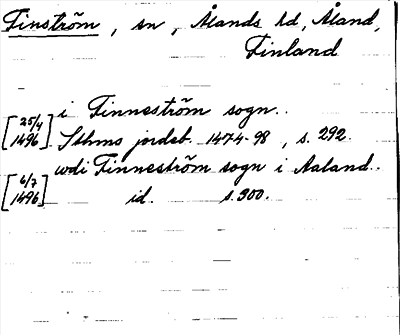 Finström, sn, Ålands hd, Åland,
Finland
[25/4 1496] i Finneström sogn..
Sthms jordeb. 1474-98, s. 292.
[6/7 1496] wdi Finneström sogn i Aaland..
id. s. 300.